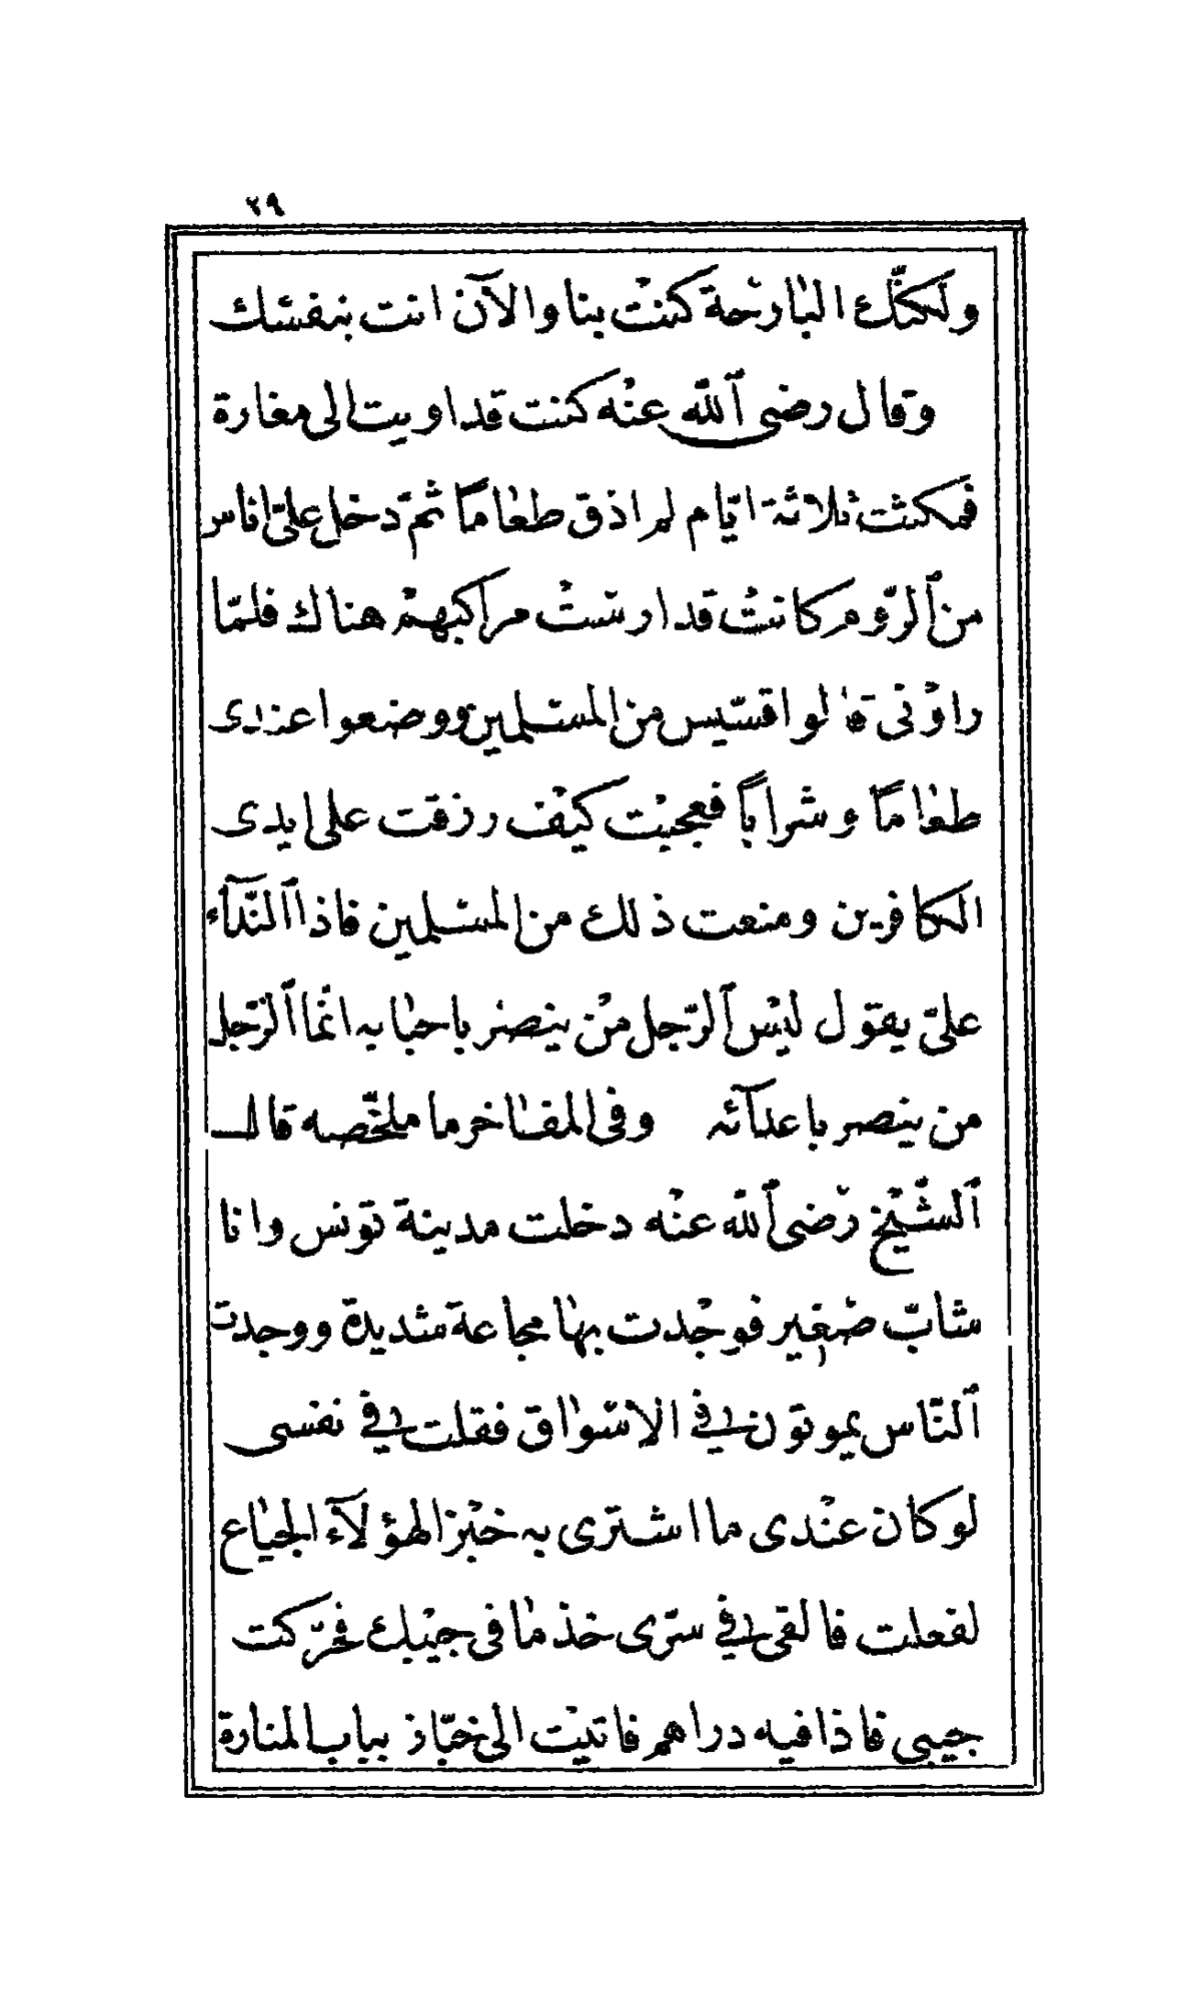 ٢٩
ولكنّك البارحة كنت بنا والآن انت بنفسك
وقال رضى ٱللّه عنْه كنت قد اويت الى مغارة
فمكثت ثلاثة ايّام لم اذق طعاماً ثمّ دخل علىّ اناس
من ٱلرّوم كانت قد ارست مراكبهم هناك فلمّا
راوْنى قالوا قسّيس من المسلمين ووضعوا عندى
طعاماً وشراباً فعجبت كيف رزقت على ايدى
الكافرين ومنعت ذلك من المسلمين فاذا ٱلنّدآء
علىّ يقول ليْس ٱلرّجل من ينصر باحبابه انّما ٱلرّجل
من ينصر باعدآئه وفى المفاخر ما ملخّصه قال
ٱلشّيْخ رضى ٱللّه عنْه دخلت مدينة تونس وانا
شابّ صغير فوجدت بها مجاعة شديدة ووجدت
ٱلنّاس يموتون فى الاسْواق فقلت فى نفسى
لو كان عنْدى ما اشترى به خبْزا لهؤلآء الجياع
لفعلت فالقى فى سرّى خذ ما فى جيْبك فحرّكت
جيبى فاذا فيه دراهم فاتيت الى خبّاز بباب المنارة